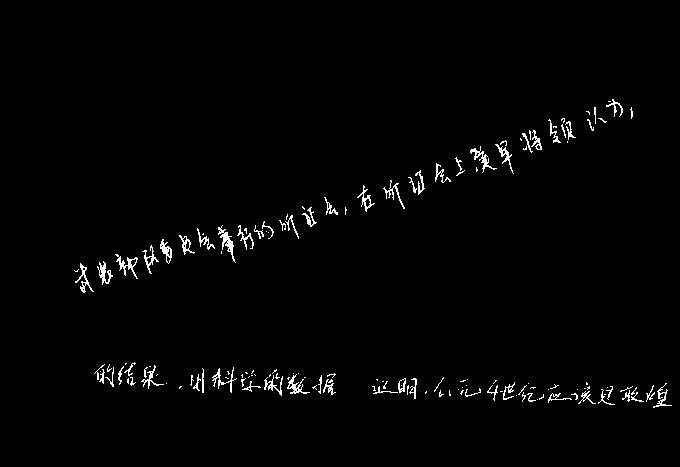 武装部队委员会举行的听证会,在听证会上美军将领认为,
的结果,用科学的数据 证明,公元4世纪应该是敦煌